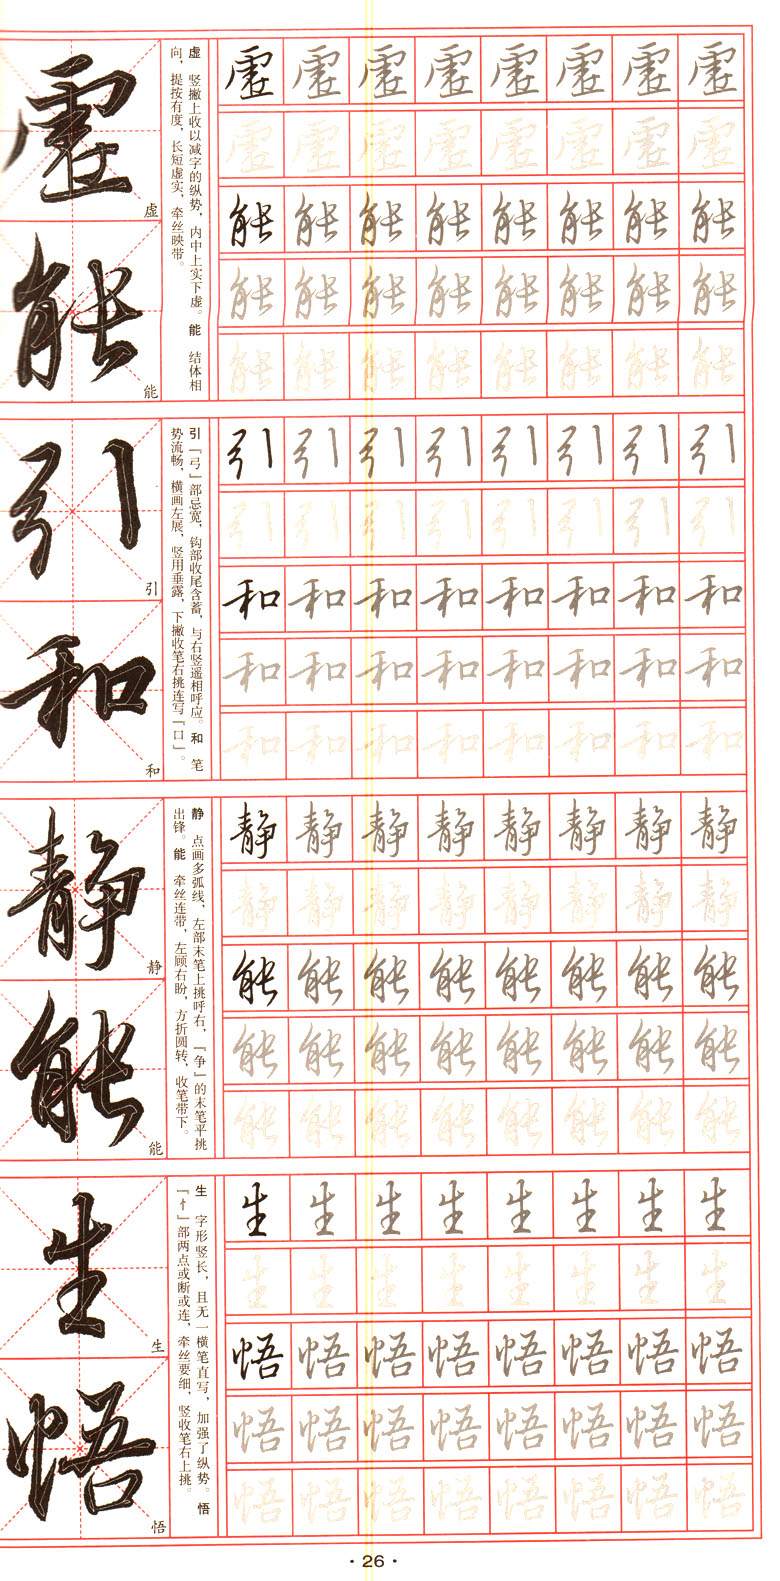 虚
能
虚　竖撇上收以减字的纵势，内中上实下虚。能　结体相
向，提按有度，长短虚实，牵丝映带。
虚虚虚虚虚虚虚虚
虚虚虚虚虚虚虚虚
能能能能能能能能
能能能能能能能能
能能能能能能能能
引
和
引「弓」部忌宽，钩部收尾含蓄，与右竖遥相呼应。和　笔
势流畅，横画左展，竖用垂露，下撇收笔右挑连写「口」。
引引引引引引引引
引引引引引引引引
和和和和和和和和
和和和和和和和和
和和和和和和和和
静
能
静　点画多弧线，左部末笔上挑呼右，「争」的末笔平挑
出锋。能　牵丝连带，左顾右盼，方折圆转，收笔带下。
静静静静静静静静
静静静静静静静静
能能能能能能能能
能能能能能能能能
能能能能能能能能
生
悟
生　字形竖长，且无一横笔直写，加强了纵势。悟
「忄」部两点或断或连，牵丝要细，竖收笔右上挑。
生生生生生生生生
生生生生生生生生
悟悟悟悟悟悟悟悟
悟悟悟悟悟悟悟悟
悟悟悟悟悟悟悟悟
·26·